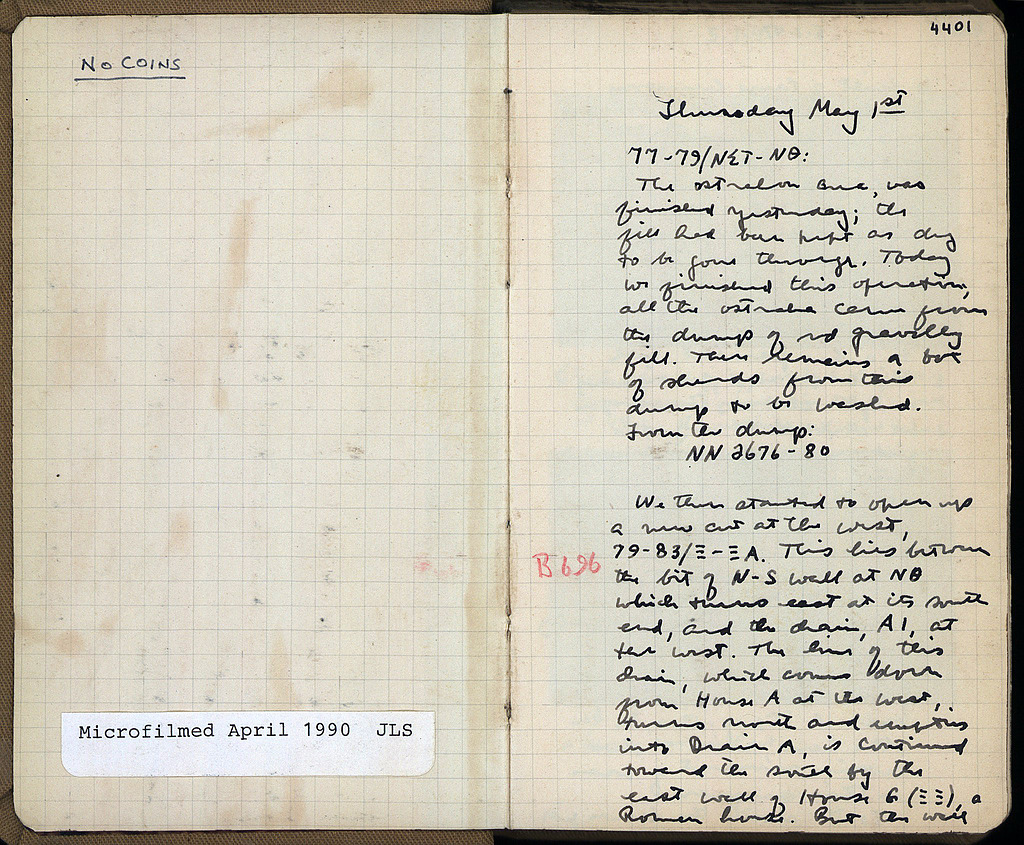 No COINS
Microfilmed April 1990 JLS
4401
Thursday May 1st
77-79/ΝΣΤ-ΝΘ:
The ostrakon area, was
finished yesterday; the
fill had been kept as dug
to be gone through. Today
we finished this operation,
all the ostraka came from
the dump of rd gravelly
fill. There remains a box
of sherds from this
dump to be washed.
From the dump:
NN 2676-80
We then started to open up
a new cut at the west,
79-83/Ξ-ΞΑ. This lies between
the bit of N-S wall at ΝΘ
which turns east at its south
end, and the drain, A1, at
the west. The line of this
drain, which comes down
from House A at the west,
turns north and empties
into Drain A, is continued
toward the south by the
east wall of House G (ΞΞ), a
Roman house. But the wall
B 696